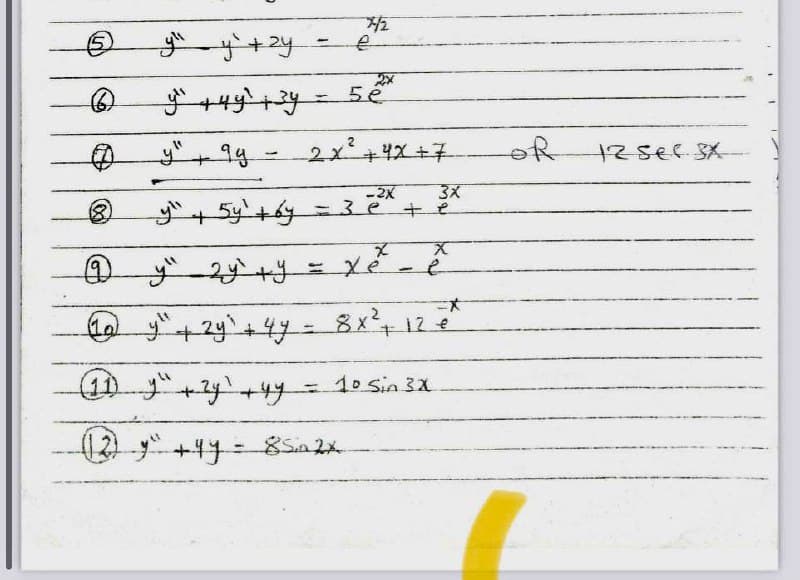 ⑤ y'' - y' + 2y = e^{x/2}
⑥ y'' + 4y' + 3y = 5e^{2x}
⑦ y'' + 9y = 2x² + 4x + 7 OR 12 sec 3x
⑧ y'' + 5y' + 6y = 3e^{-2x} + e^{3x}
⑨ y'' - 2y' + y = xe^{x} - e^{x}
⑩ y'' + 2y' + 4y = 8x² + 12e^{-x}
⑪ y'' + 2y' + 4y = 10 sin 3x
⑫ y'' + 4y = 8 Sin 2x